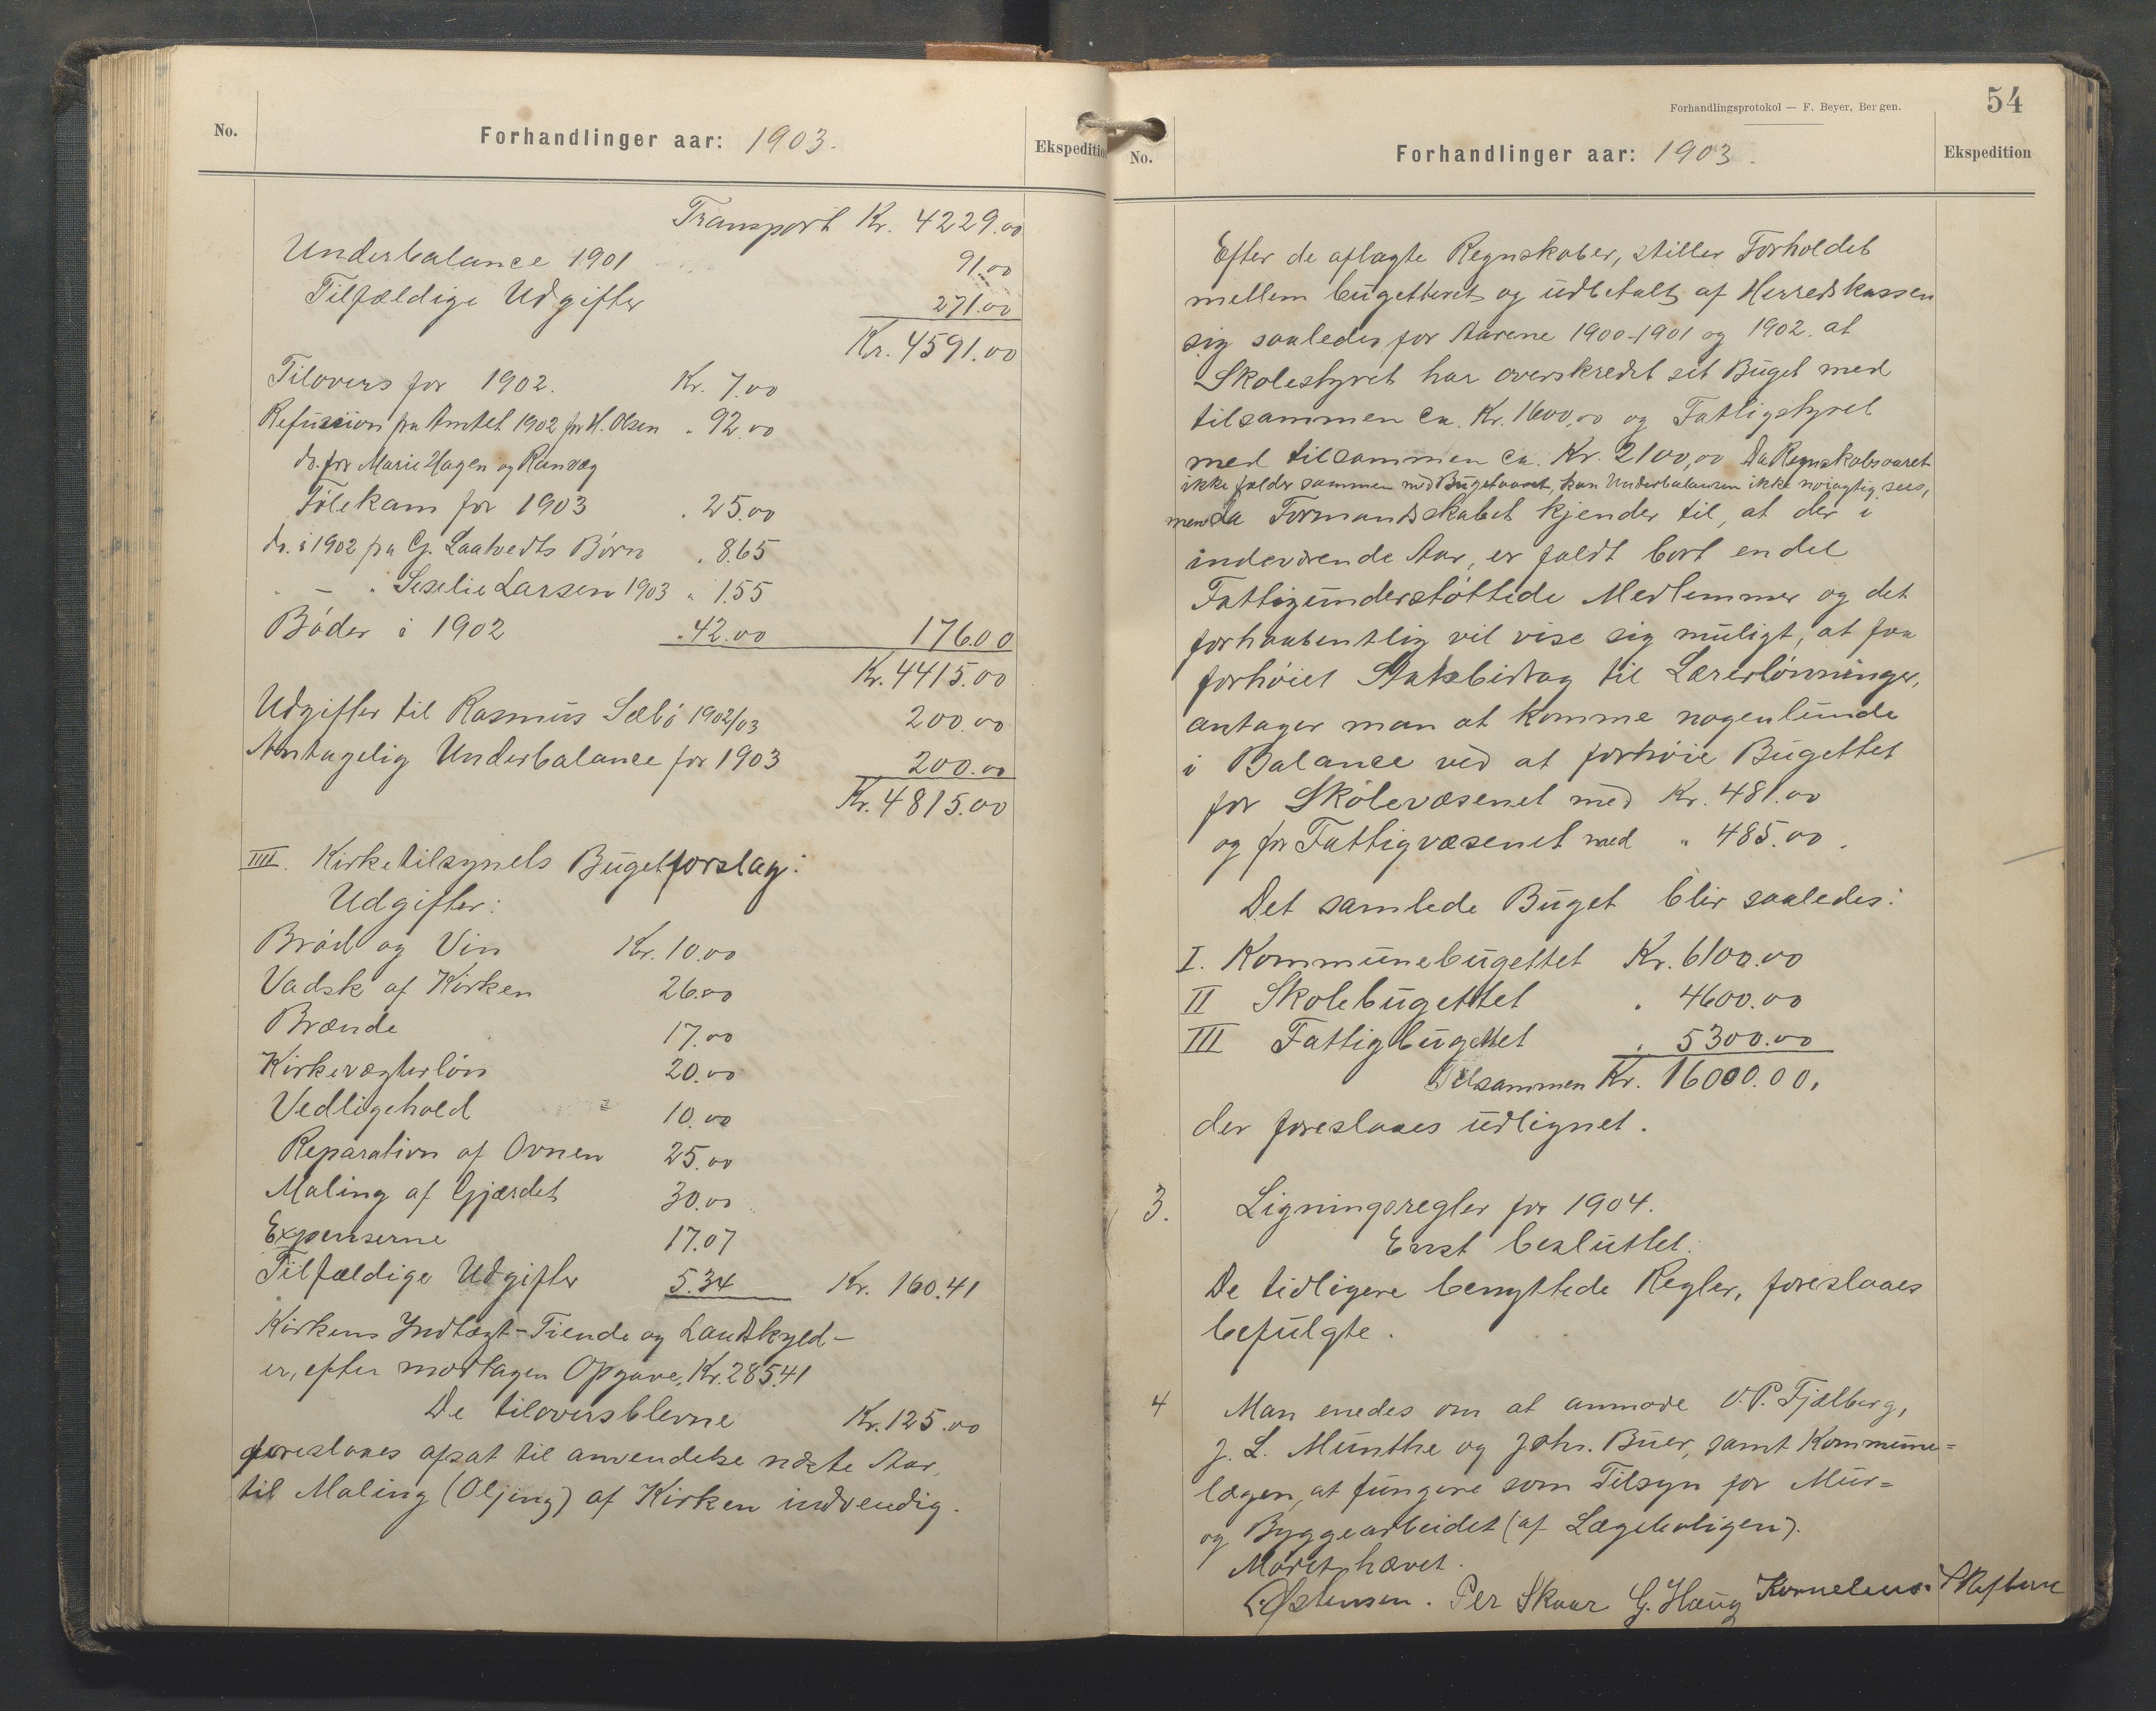 No.
Forhandlinger aar: 1903.
Ekspedition
Transport Kr. 4229.00
Underbalance 1901 91.00
Tilfældige Udgifter 271.00
Kr. 4591.00
Tilovers for 1902. Kr. 7.00
Refusion fra Amtet 1902 for H. Olsen " 92.00
do. for Marie Hagen og Ranvæg
Følekam for 1903 " 25.00
do. i 1902 fra G. Laatvedts Børn " 8.65
" – " Seselie Larsen 1903 " 1.55
Bøder i 1902 " 42.00 176.00
Kr. 4415.00
Udgifter til Rasmus Sæbø 1902/03 200.00
Antagelig Underbalance for 1903 200.00
Kr. 4815.00
IIII. Kirketilsynets Bugetforslag:
Udgifter:
Brød og Vin Kr. 10.00
Vadsk af Kirken 26.00
Brænde 17.00
Kirkevægterløn 20.00
Vedligehold 10.00
Reparation af Ovnen 25.00
Maling af Gjærdet 30.00
Expenserne 17.07
Tilfældige Udgifter 5.34 Kr. 160.41
Kirkens Indtægt - Tiende og Landskyld -
er, efter modtagen Opgave, Kr. 285.41
De tiloversblevne Kr. 125.00
foreslaaes afsat til anvendelse næste Aar,
til Maling (Oljing) af Kirken indvendig.
Forhandlingsprotokol — F. Beyer, Bergen.
54
No.
Forhandlinger aar: 1903.
Ekspedition
Efter de aflagte Regnskaber, stiller Forholdet
mellem bugetteret og udbetalt af Herredskassen
sig saaledes for Aarene 1900-1901 og 1902. at
Skolestyret har overskredet sit Buget med
tilsammen ca. Kr. 1600,00 og Fattigstyret
med tilsammen ca. Kr. 2100,00 Da Regnskabsaaret
ikke falder sammen med Bugetaaret, kan Underbalancen ikke nøiagtig sees,
men da Formandskabet kjender til, at der i
indeværende Aar, er faldt bort endel
Fattigunderstøttede Medlemmer og det
forhaabentlig vil vise sig muligt, at faa
forhøiet Statsbidrag til Lærerlønninger,
antager man at komme nogenlunde
i Balance ved at forhøie Bugettet
for Skolevæsenet med Kr. 481.00
og for Fattigvæsenet med " 485.00.
Det samlede Buget blir saaledes:
I. Kommunebugettet Kr. 6100.00
II Skolebugettet " 4600.00
III Fattigbugettet " 5300.00
Tilsammen Kr. 16000.00,
der foreslaaes udlignet.
3. Ligningsregler for 1904.
Enst besluttet:
De tidligere benyttede Regler, foreslaaes
befulgte.
4 Man enedes om at anmode O. P. Fjælberg,
J. L. Munthe og Johs. Buer, samt Kommune=
lægen, at fungere som Tilsyn for Mur=
og Byggearbeidet (af Lægeboligen).
Mødet hævet.
L. Østensen. Per Skaar G. Haug Kornelius Skaftun